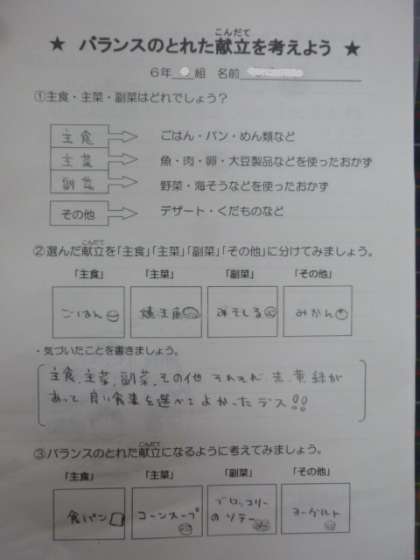 ★ バランスのとれた献立を考えよう ★
こんだて
6年 組 名前
①主食・主菜・副菜はどれでしょう?
主食 ごはん・パン・めん類など
主菜 魚・肉・卵・大豆製品などを使ったおかず
副菜 野菜・海そうなどを使ったおかず
その他 デザート・くだものなど
こんだて
②選んだ献立を「主食」「主菜」「副菜」「その他」に分けてみましょう。
「主食」 「主菜」 「副菜」 「その他」
ごはん みそしる みかん
・気づいたことを書きましょう。
主食、主菜、副菜、その他 それぞれ 赤、黄、緑が
あって 良い食事を選べてよかったデス!!
こんだて
③バランスのとれた献立になるように考えてみましょう。
「主食」 「主菜」 「副菜」 「その他」
食パン コーンスープ ブロッコリーのソテー ヨーグルト